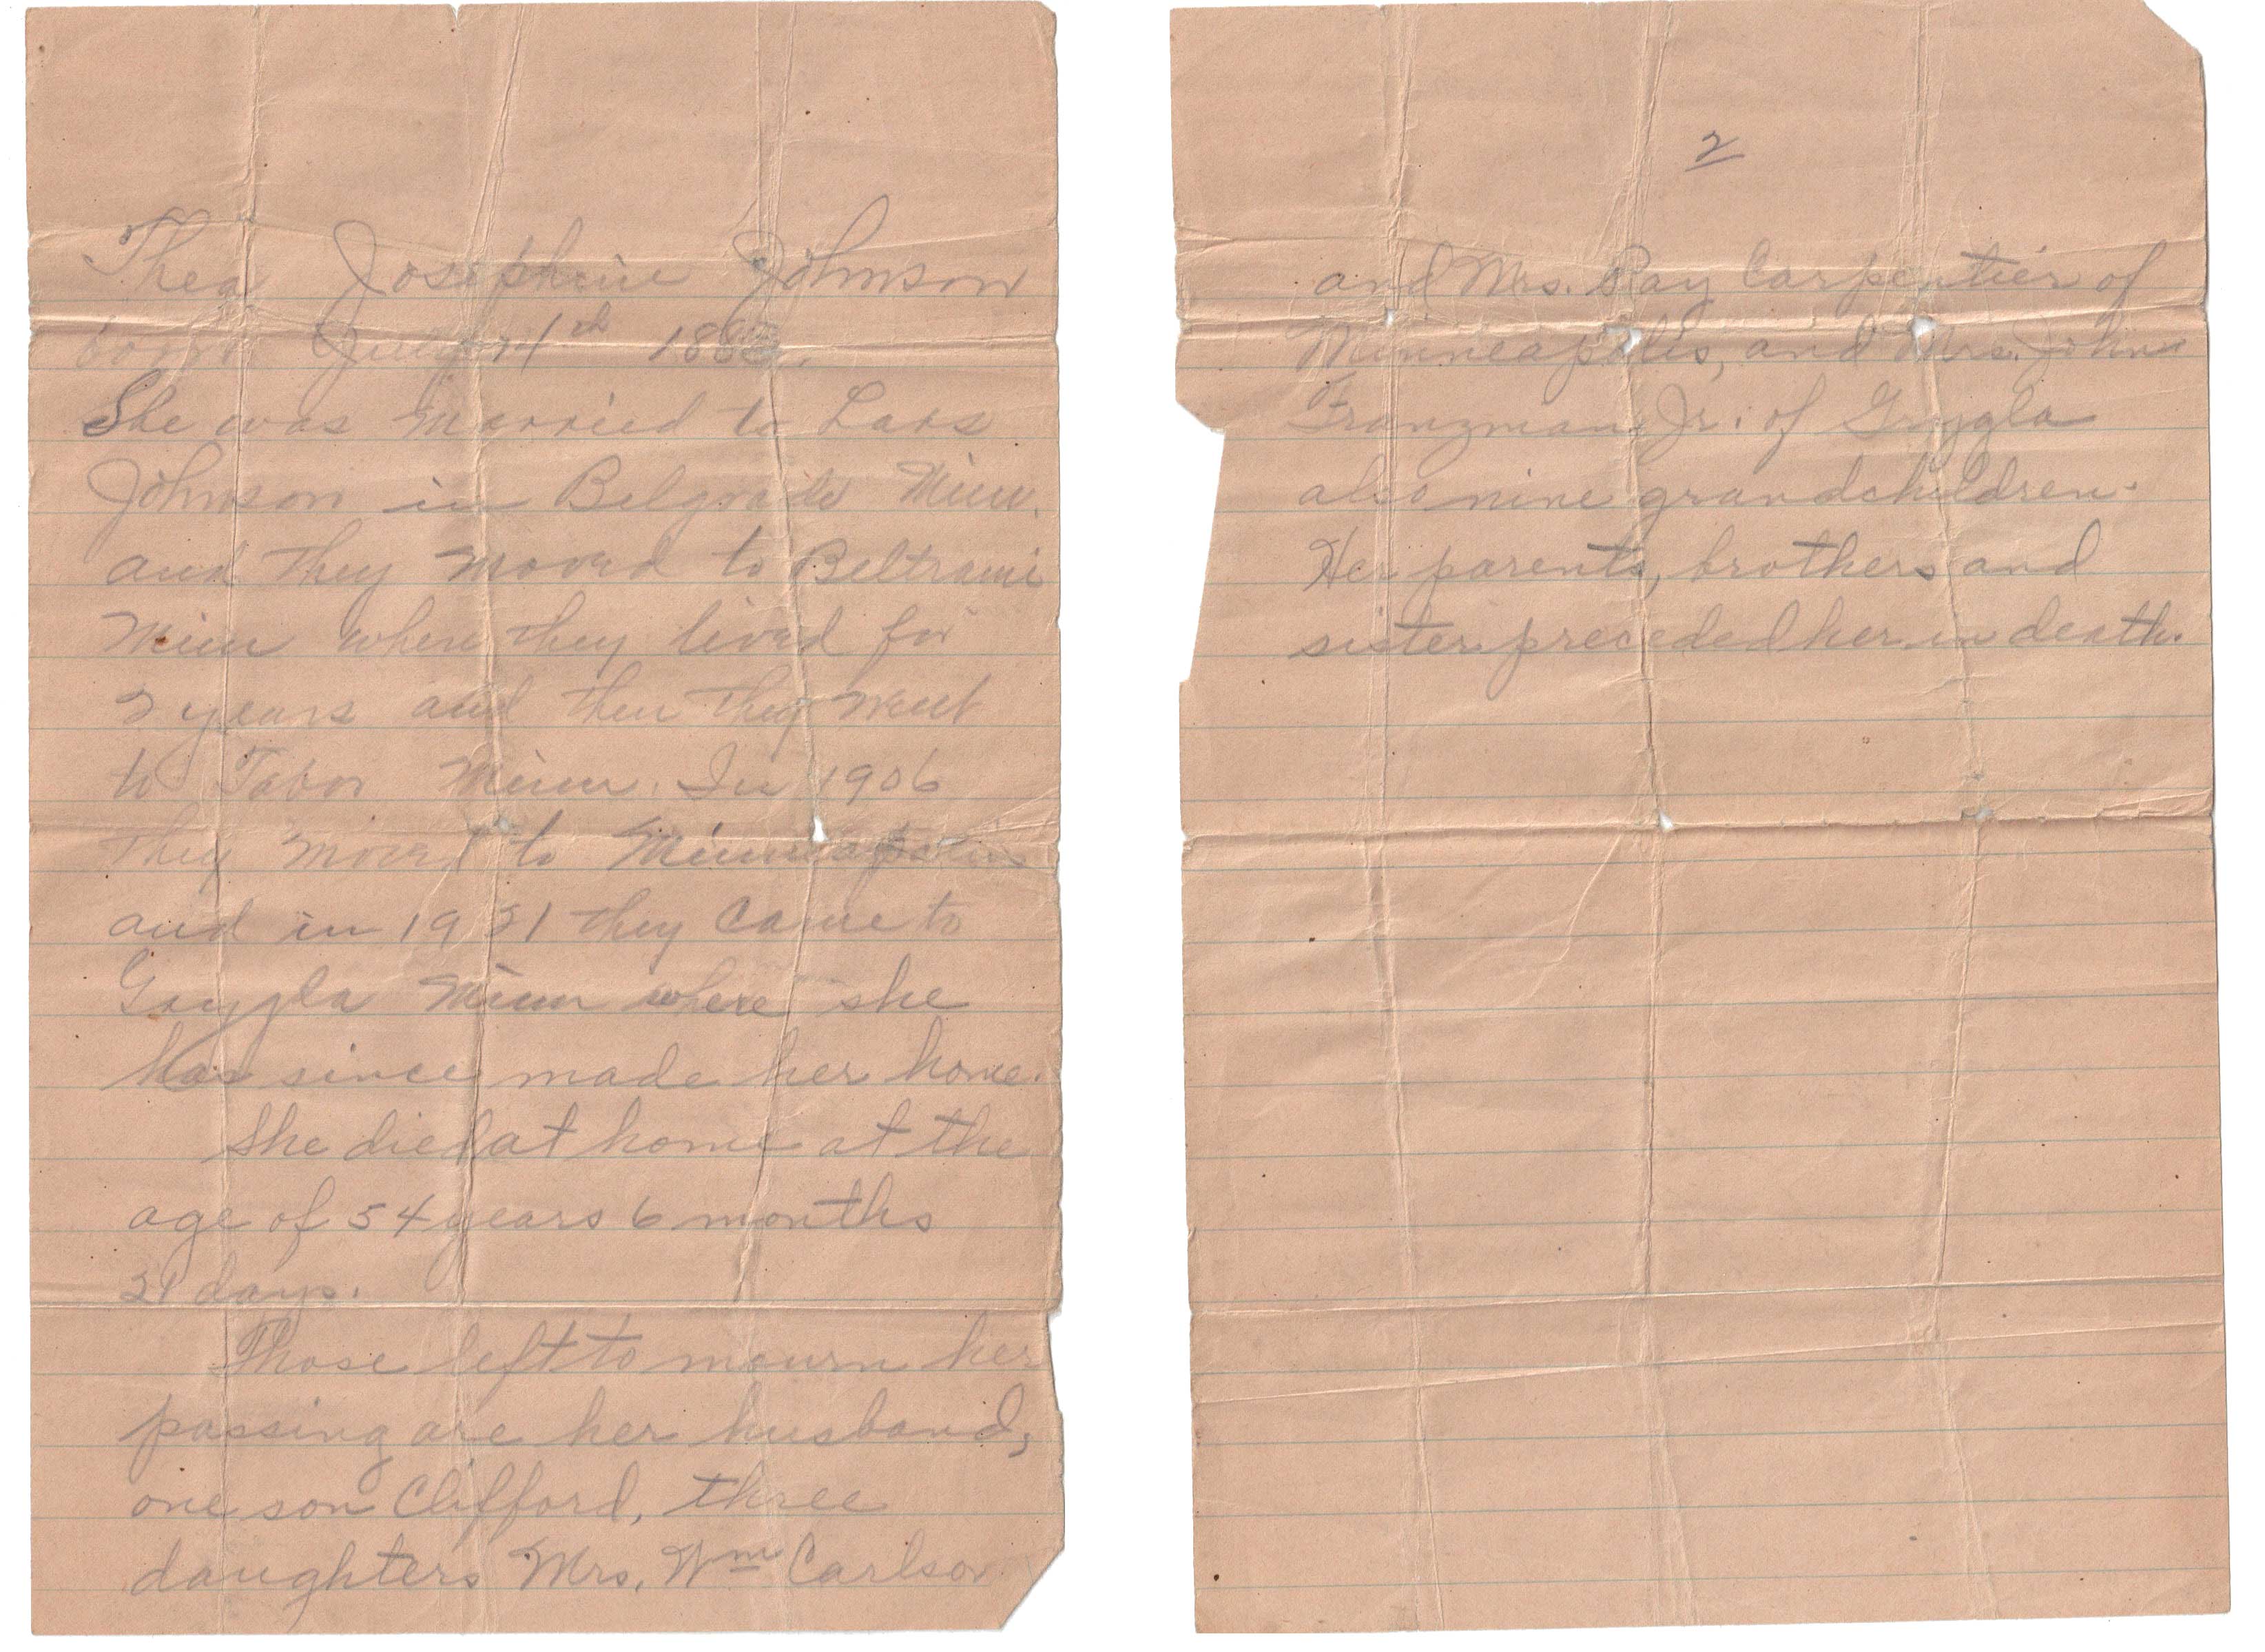 Thea Josephine Johnson
born July 24th 1883.
She was married to Lars
Johnson in Belgrade Minn.
and they moved to Beltrami
Minn where they lived for
2 years and then they went
to Tabor Minn. In 1906
they moved to Minneapolis
and in 1931 they came to
Grygla Minn where she
has since made her home.
She died at home at the
age of 54 years 6 months
21 days.
Those left to mourn her
passing are her husband,
one son Clifford, three
daughters Mrs. Wm Carlson
2
and Mrs. Ray Carpentier of
Minneapolis, and Mrs. John
Franzman Jr. of Grygla
also nine grandchildren.
Her parents, brothers and
sister preceded her in death.